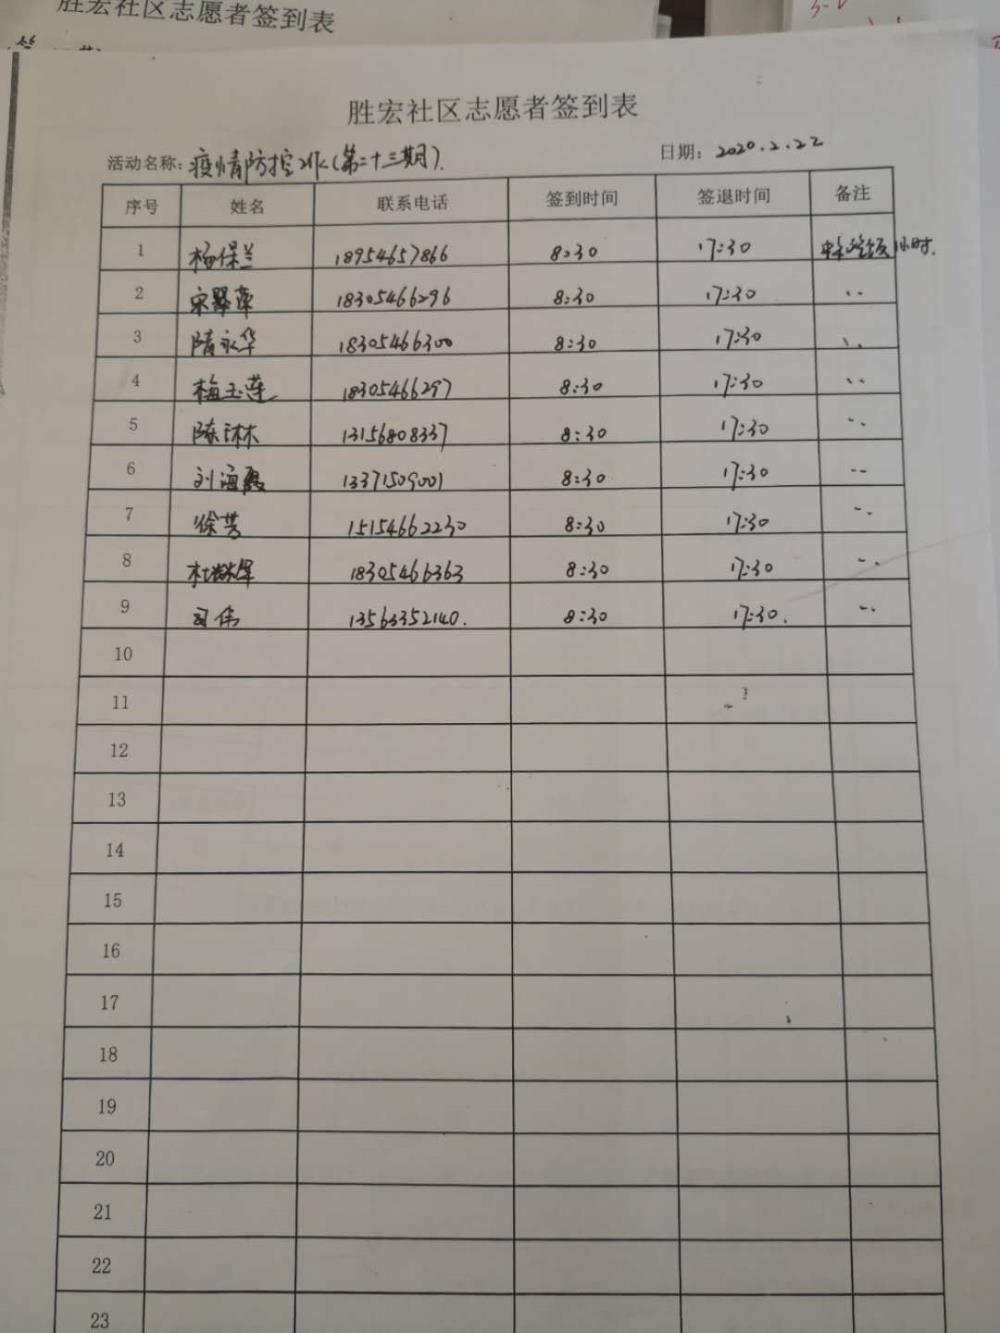 胜宏社区志愿者签到表
胜宏社区志愿者签到表
活动名称: 疫情防控工作(第二十三期). 日期: 2020.2.22
序号 姓名 联系电话 签到时间 签退时间 备注
1 杨保兰 18954657866 8:30 17:30 小时.
2 宋翠萍 18305466296 8:30 17:30 ..
3 隋永华 18305466300 8:30 17:30 ..
4 梅玉莲 18305466297 8:30 17:30 ..
5 陈林 13156808337 8:30 17:30 ..
6 刘海霞 13371509001 8:30 17:30 --
7 徐芳 15154662230 8:30 17:30 -.
8 18305466363 8:30 17:30 -.
9 司伟 13563352140. 8:30 17:30. -.
10
11
12
13
14
15
16
17
18
19
20
21
22
23